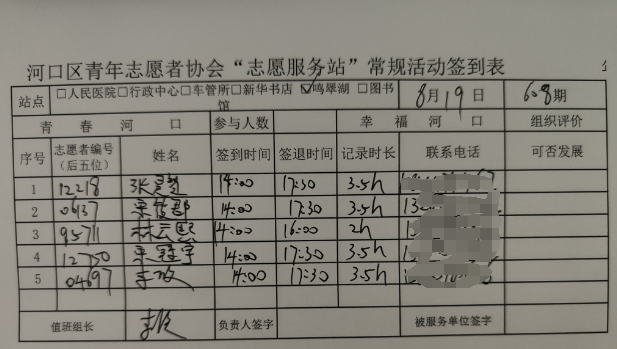 河口区青年志愿者协会“志愿服务站”常规活动签到表
站点 □人民医院□行政中心□车管所□新华书店☑鸣翠湖 □图书馆 8月19日 608期
青 春 河 口 参与人数 幸 福 河 口 组织评价
序号 志愿者编号（后五位） 姓名 签到时间 签退时间 记录时长 联系电话 可否发展
1 12218 张 14:00 17:30 3.5h
2 0637 14:00 17:30 3.5h
3 95711 林云熙 14:00 16:00 2h
4 12750 14:00 17:30 3.5h
5 04697 李 14:00 17:30 3.5h
值班组长 李 负责人签字 被服务单位签字